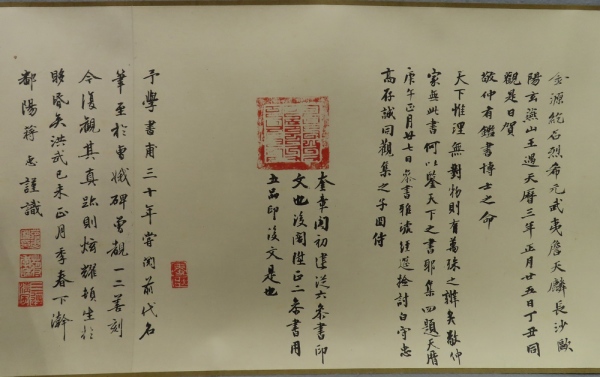 金源紇石烈希元武夷詹天麟長沙歐
陽玄燕山王遇天曆三年正月廿五日丁丑同
觀是日賀
敬仲有鑑書博士之命
天下惟理無對物則有萬殊之辯矣敬仲
家無此書何以鑒天下之書耶集四題天曆
庚午正月廿七日參書雅琥經筵檢討白守忠
高存誠同觀集之子同侍
奎章閣初建從六參書印
文也後閣陞正二參書用
五品印後文是也
予學書甫三十年嘗閱前代名
筆至於曹娥碑曾覩一二善刻
今復觀其真跡則炫耀頓生於
眵昏矣洪武己未正月季春下澣
鄱陽蔣忠謹識